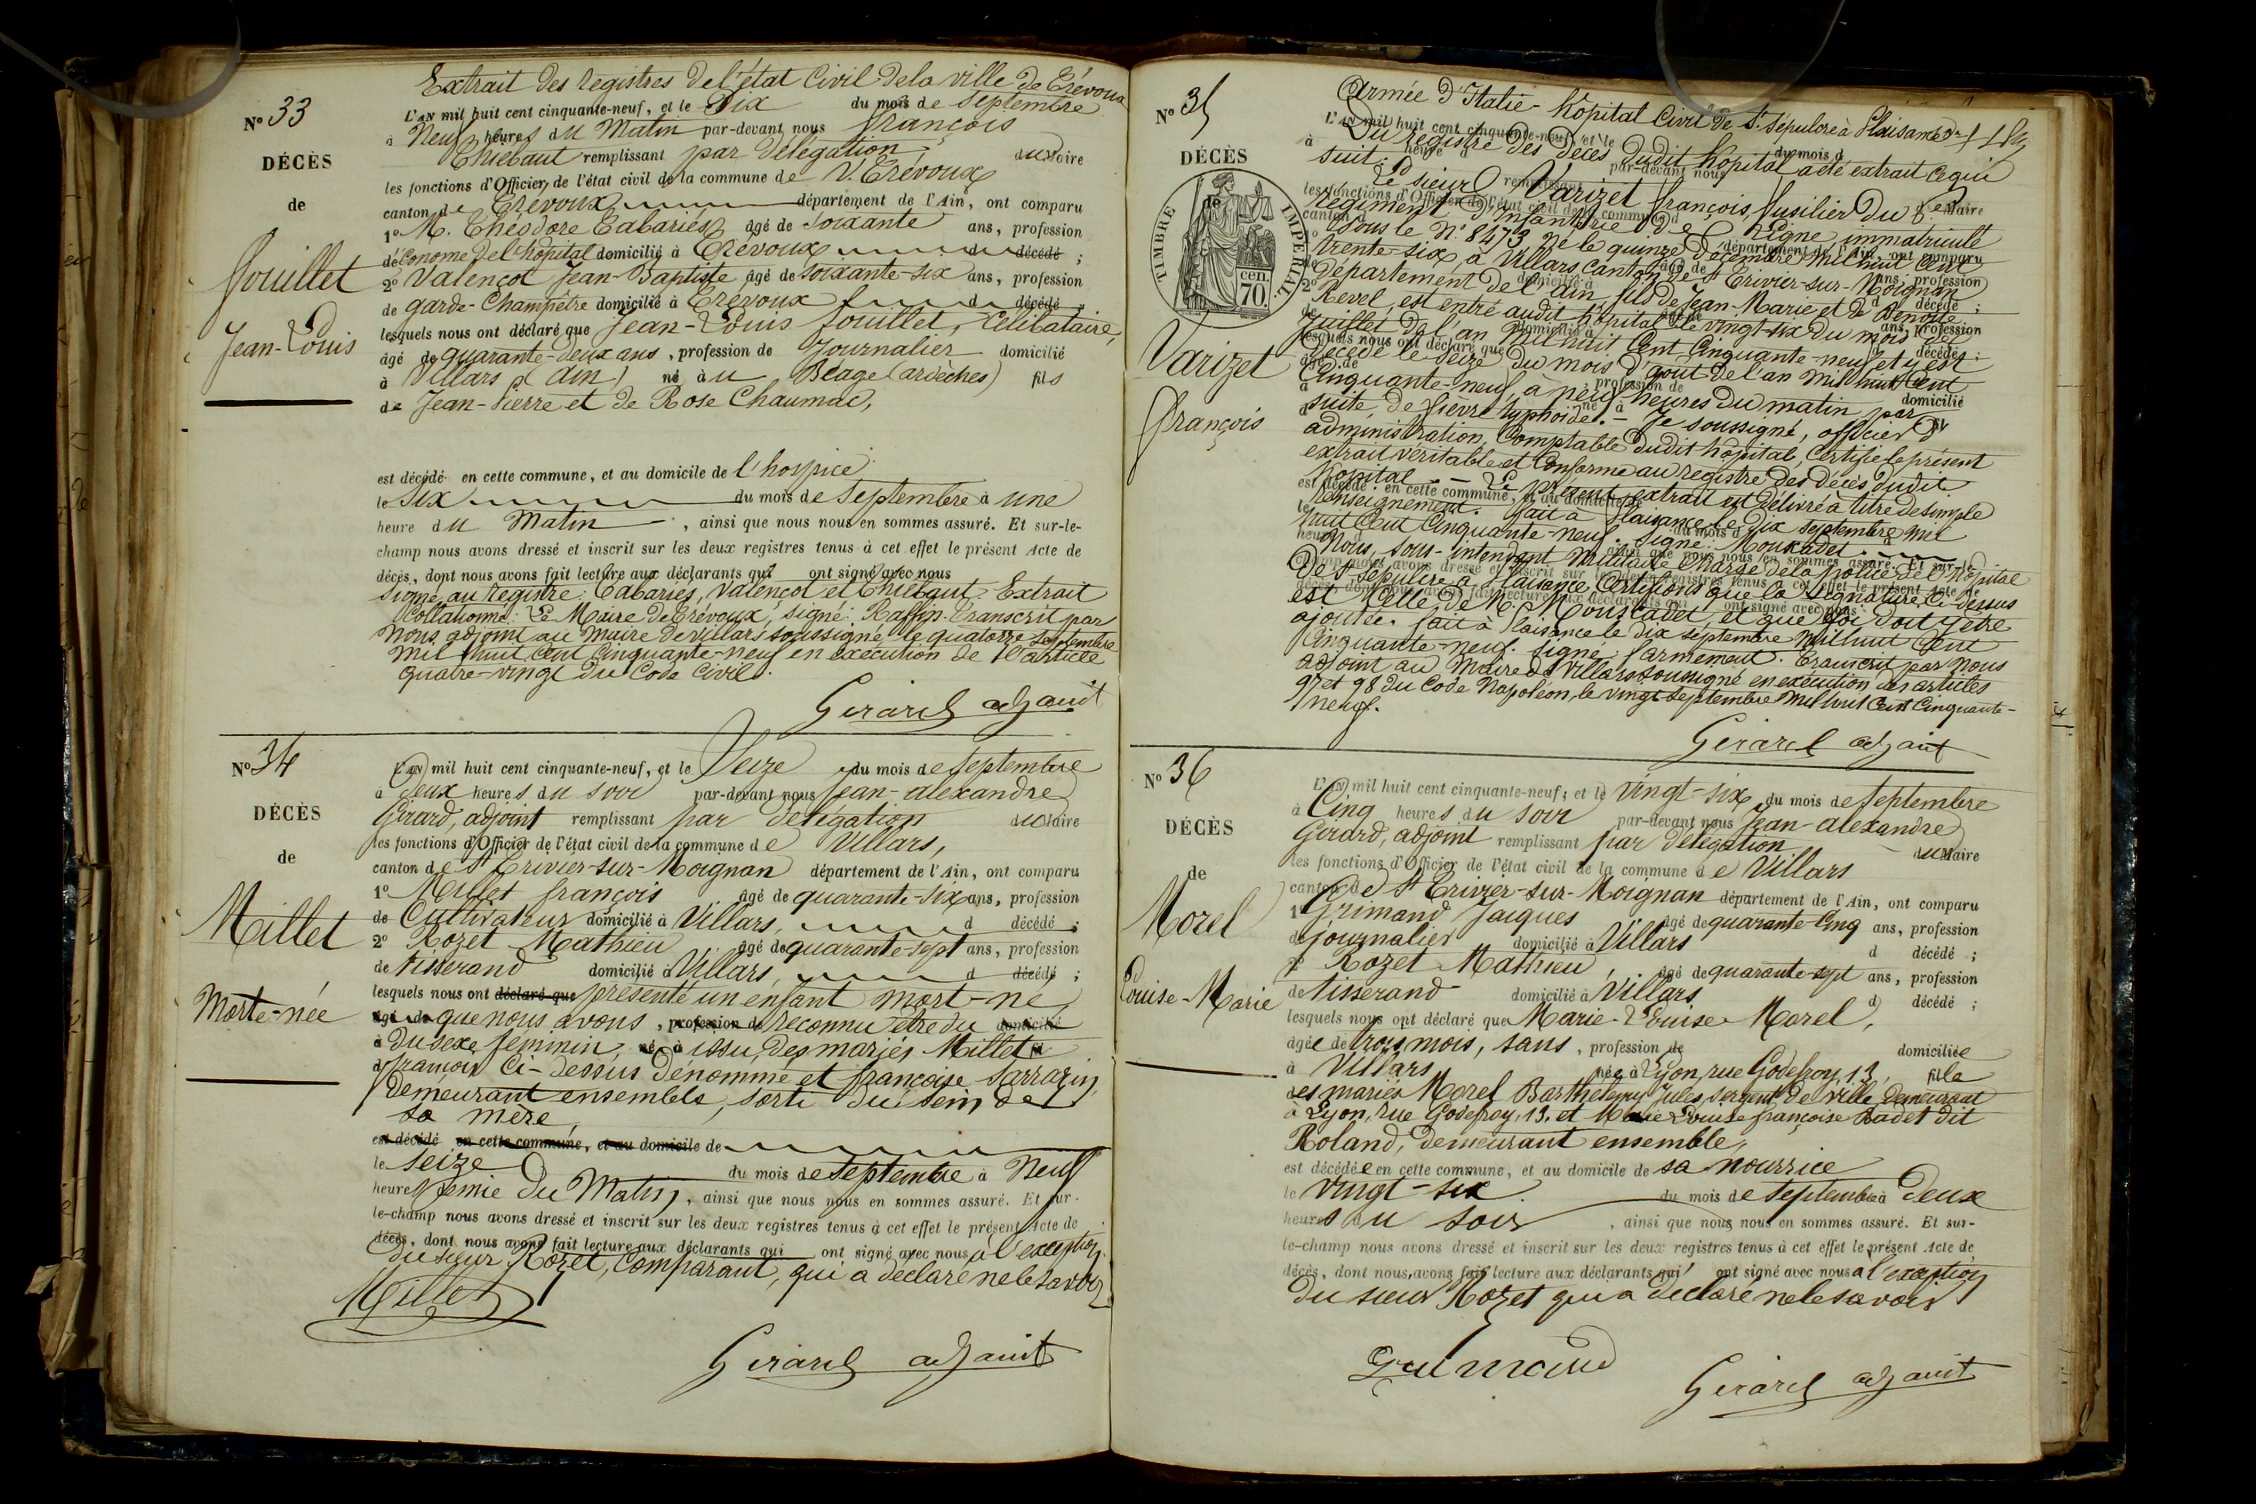 Extrait des registres de l'état Civil de la ville de Trévoux
N° 33
L'AN mil huit cent cinquante-neuf, et le Dix du mois de Septembre
à Neuf heures du Matin par-devant nous François
Thiébaut remplissant par Délégation du Maire
DÉCÈS
les fonctions d'Officier de l'état civil de la commune de V. Trévoux
de
canton de Trévoux département de l'Ain, ont comparu
1° M. Théodore Cabariés âgé de soixante ans, profession
d'économe de l'hôpital domicilié à Trévoux d décédé ;
Jouillet
2° Valençot Jean-Baptiste âgé de soixante-six ans, profession
de garde-Champêtre domicilié à Trévoux d décédé,
lesquels nous ont déclaré que Jean-Louis Jouillet, Célibataire,
Jean-Louis
âgé de quarante-deux ans, profession de Journalier domicilié
à Villars (Ain) né à u Béage (ardèches) fils
de Jean-Pierre et de Rose Chaumac,
est décédé en cette commune, et au domicile de l'hospice
le six du mois de septembre à une
heure du Matin, ainsi que nous nous en sommes assuré. Et sur-le-
champ nous avons dressé et inscrit sur les deux registres tenus à cet effet le présent Acte de
décès, dont nous avons fait lecture aux déclarants qui ont signé avec nous
Signé au registre : Cabariés, Valençot et Thiébaut. Extrait
Collationné : Le Maire de Trévoux, signé : Raffin. Transcrit par
Nous adjoint au Maire de Villars soussigné le quatorze septembre
Mil huit Cent Cinquante-neuf en exécution de l'article
quatre-vingt du Code Civil.
Girard adjoint
N° 34
L'AN mil huit cent cinquante-neuf, et le Seize du mois de Septembre
à Deux heures du soir par-devant nous Jean-Alexandre
DÉCÈS
Girard, adjoint remplissant par délégation du Maire
les fonctions d'Officier de l'état civil de la commune de Villars,
de
canton de St Trivier-sur-Moignan département de l'Ain, ont comparu
1° Millet François âgé de quarante-six ans, profession
de Cultivateur domicilié à Villars, d décédé ;
Millet
2° Rozet Mathieu âgé de quarante-sept ans, profession
de tisserand domicilié à Villars, d décédé ;
lesquels nous ont déclaré que présenté un enfant mort-né
Morte-née
âgé de que nous avons, profession de reconnu être du domicilié
à du sexe féminin, né à issu des mariés Millet fil
d François Ci-dessus dénommé et Françoise Sarrazin,
demeurant ensemble, sorti du sein de
sa mère,
est décédé en cette commune, et au domicile de
le seize du mois de septembre à Neuf
heures demie du Matin, ainsi que nous nous en sommes assuré. Et sur-
le-champ nous avons dressé et inscrit sur les deux registres tenus à cet effet le présent Acte de
décès, dont nous avons fait lecture aux déclarants qui ont signé avec nous à l'exception
du sieur Rozet, Comparant, qui a déclaré ne le savoir
Millet
Girard adjoint
Armée d'Italie - hôpital Civil de St Sépulcre à Plaisance
N° 35
L'AN mil huit cent cinquante-neuf, et le du mois d
Du registre des Décès dudit hôpital a été extrait ce qui
DÉCÈS
suit :
Le sieur Varizet François, fusilier du
TIMBRE IMPÉRIAL
cen. 70.
régiment d'infanterie de Ligne immatriculé
sous le N° 8473 né le quinze Décembre mil huit cent
trente-six à Villars Canton de St Trivier-sur-Moignan
Département de l'Ain, fils de Jean-Marie et de Benoîte
Revel, est entré audit hôpital le vingt-six du mois de
Juillet de l'an Mil huit Cent Cinquante-neuf et y est
Varizet
décédé le seize du mois d'août de l'an mil huit Cent
Cinquante-neuf, à neuf heures du matin par
François
suite de fièvre typhoïde. - Je soussigné, officier d'
administration, Comptable dudit hôpital, Certifie le présent
extrait véritable et Conforme au registre des Décès dudit
hôpital. - Le présent extrait est délivré à titre de simple
renseignement. fait à Plaisance le dix septembre mil
huit Cent Cinquante-neuf. Signé : Mouscadet.
Nous, sous-intendant Militaire chargé de la police de l'hôpital
De St Sépulcre à Plaisance Certifions que la signature ci-dessus
est Celle de M. Mouscadet, et que foi doit y être
ajoutée. fait à Plaisance le dix septembre Mil huit Cent
Cinquante-neuf. signé : Parmement. Transcrit par Nous
adjoint au Maire de Villars soussigné en exécution des articles
97 et 98 du Code Napoléon, le vingt septembre mil huit Cent Cinquante-
neuf.
Girard adjoint
N° 36
L'AN mil huit cent cinquante-neuf, et le vingt-six du mois de Septembre
à Cinq heures du soir par-devant nous Jean-Alexandre
DÉCÈS
Girard, adjoint remplissant par Délégation du Maire
les fonctions d'Officier de l'état civil de la commune de Villars
de
canton de St Trivier-sur-Moignan département de l'Ain, ont comparu
1° Grimand Jacques âgé de quarante-Cinq ans, profession
Morel
de journalier domicilié à Villars d décédé ;
2° Rozet Mathieu, âgé de quarante-sept ans, profession
Louise-Marie
de tisserand domicilié à Villars d décédé ;
lesquels nous ont déclaré que Marie-Louise Morel,
âgée de trois mois, sans, profession de domiciliée
à Villars née à Lyon, rue Godefroy, 13, fille
des mariés Morel Barthélemy Jules, sergent de ville demeurant
à Lyon, rue Godefroy, 13, et Marie Louise Françoise Badet dit
Roland, demeurant ensemble,
est décédée en cette commune, et au domicile de sa nourrice
le vingt-six du mois de septembre à deux
heures du soir, ainsi que nous nous en sommes assuré. Et sur-
le-champ nous avons dressé et inscrit sur les deux registres tenus à cet effet le présent Acte de
décès, dont nous avons fait lecture aux déclarants qui ont signé avec nous à l'exception
du sieur Rozet qui a déclaré ne le savoir
Grimand
Girard adjoint